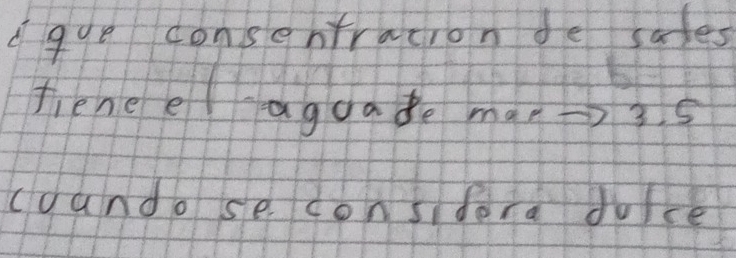 ¿que consentracion de sales
tiene el agua de mar → 3.5
cuando se considera dulce